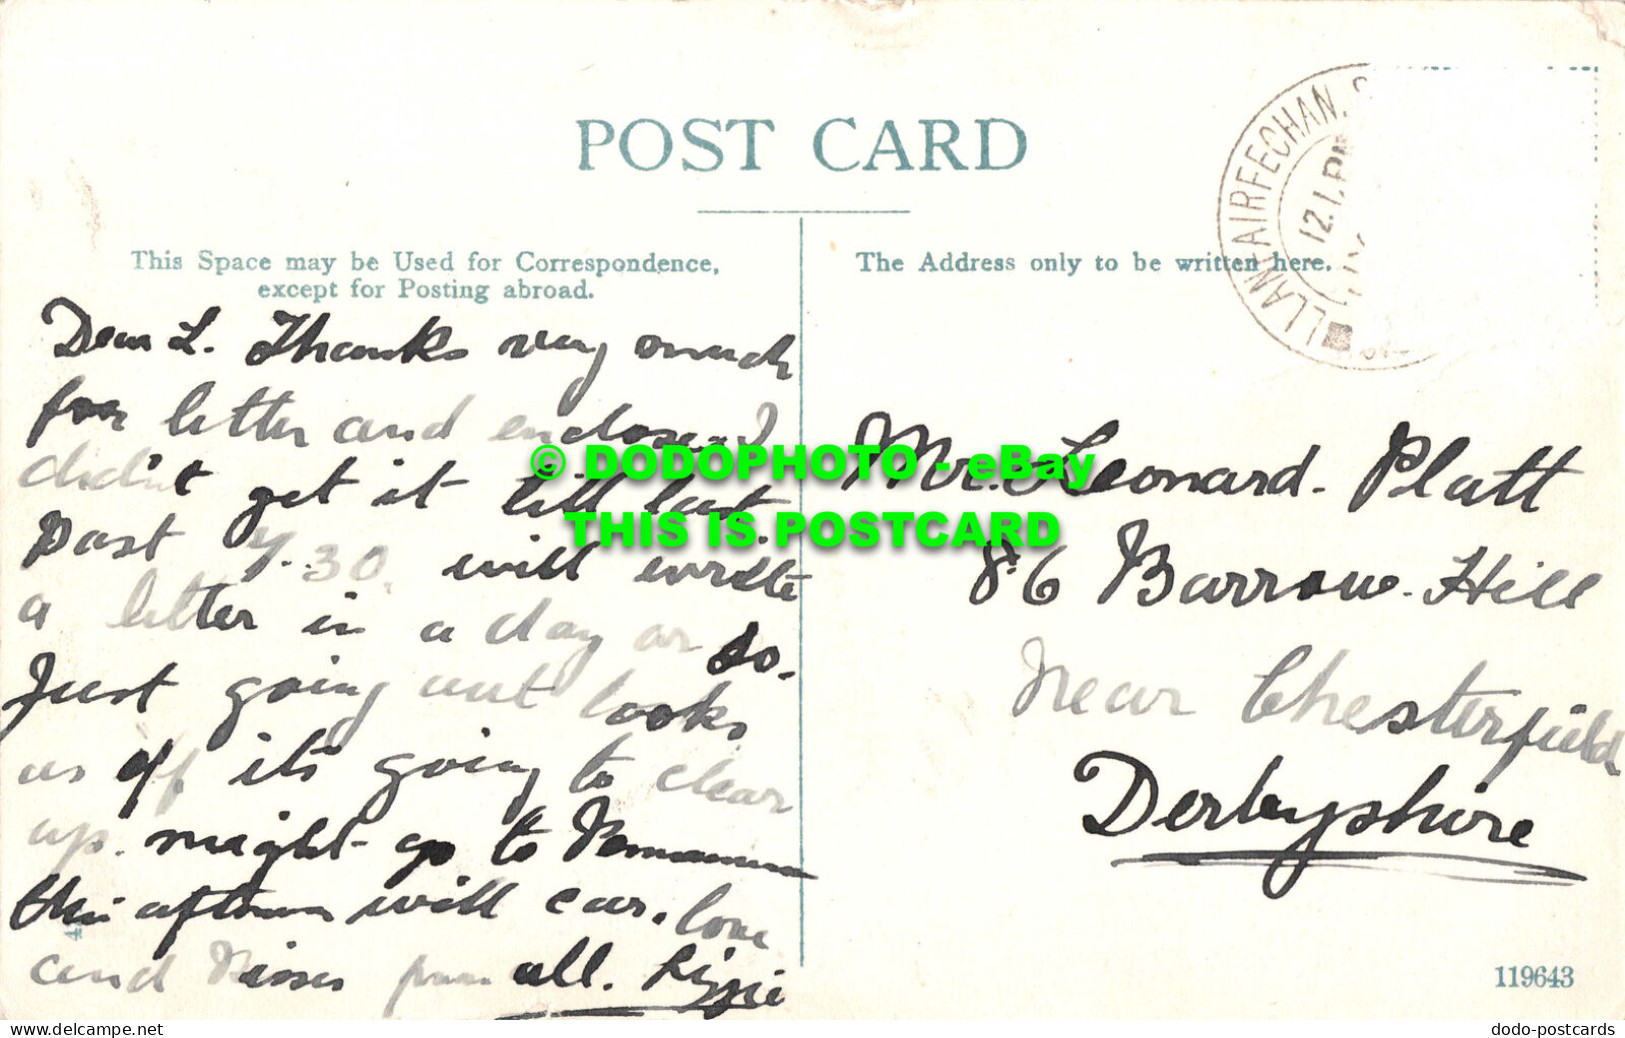 POST CARD
This Space may be Used for Correspondence,
except for Posting abroad.
The Address only to be written here.
LLANFAIRFECHAN.
12.1.PM
Dear L. Thanks very much
for letter and enclosed
didn't get it till last
past 7.30. will write
a letter in a day or so.
Just going out looks
as if its going to clear
up. might go to Penmaenmawr
this aftnoon with car. love
and Kisses from all. Lizzie
Mr. Leonard. Platt
86 Barrow. Hill
Near Chesterfield
Derbyshire
119643
© DODOPHOTO - eBay
THIS IS POSTCARD
www.delcampe.net
dodo-postcards